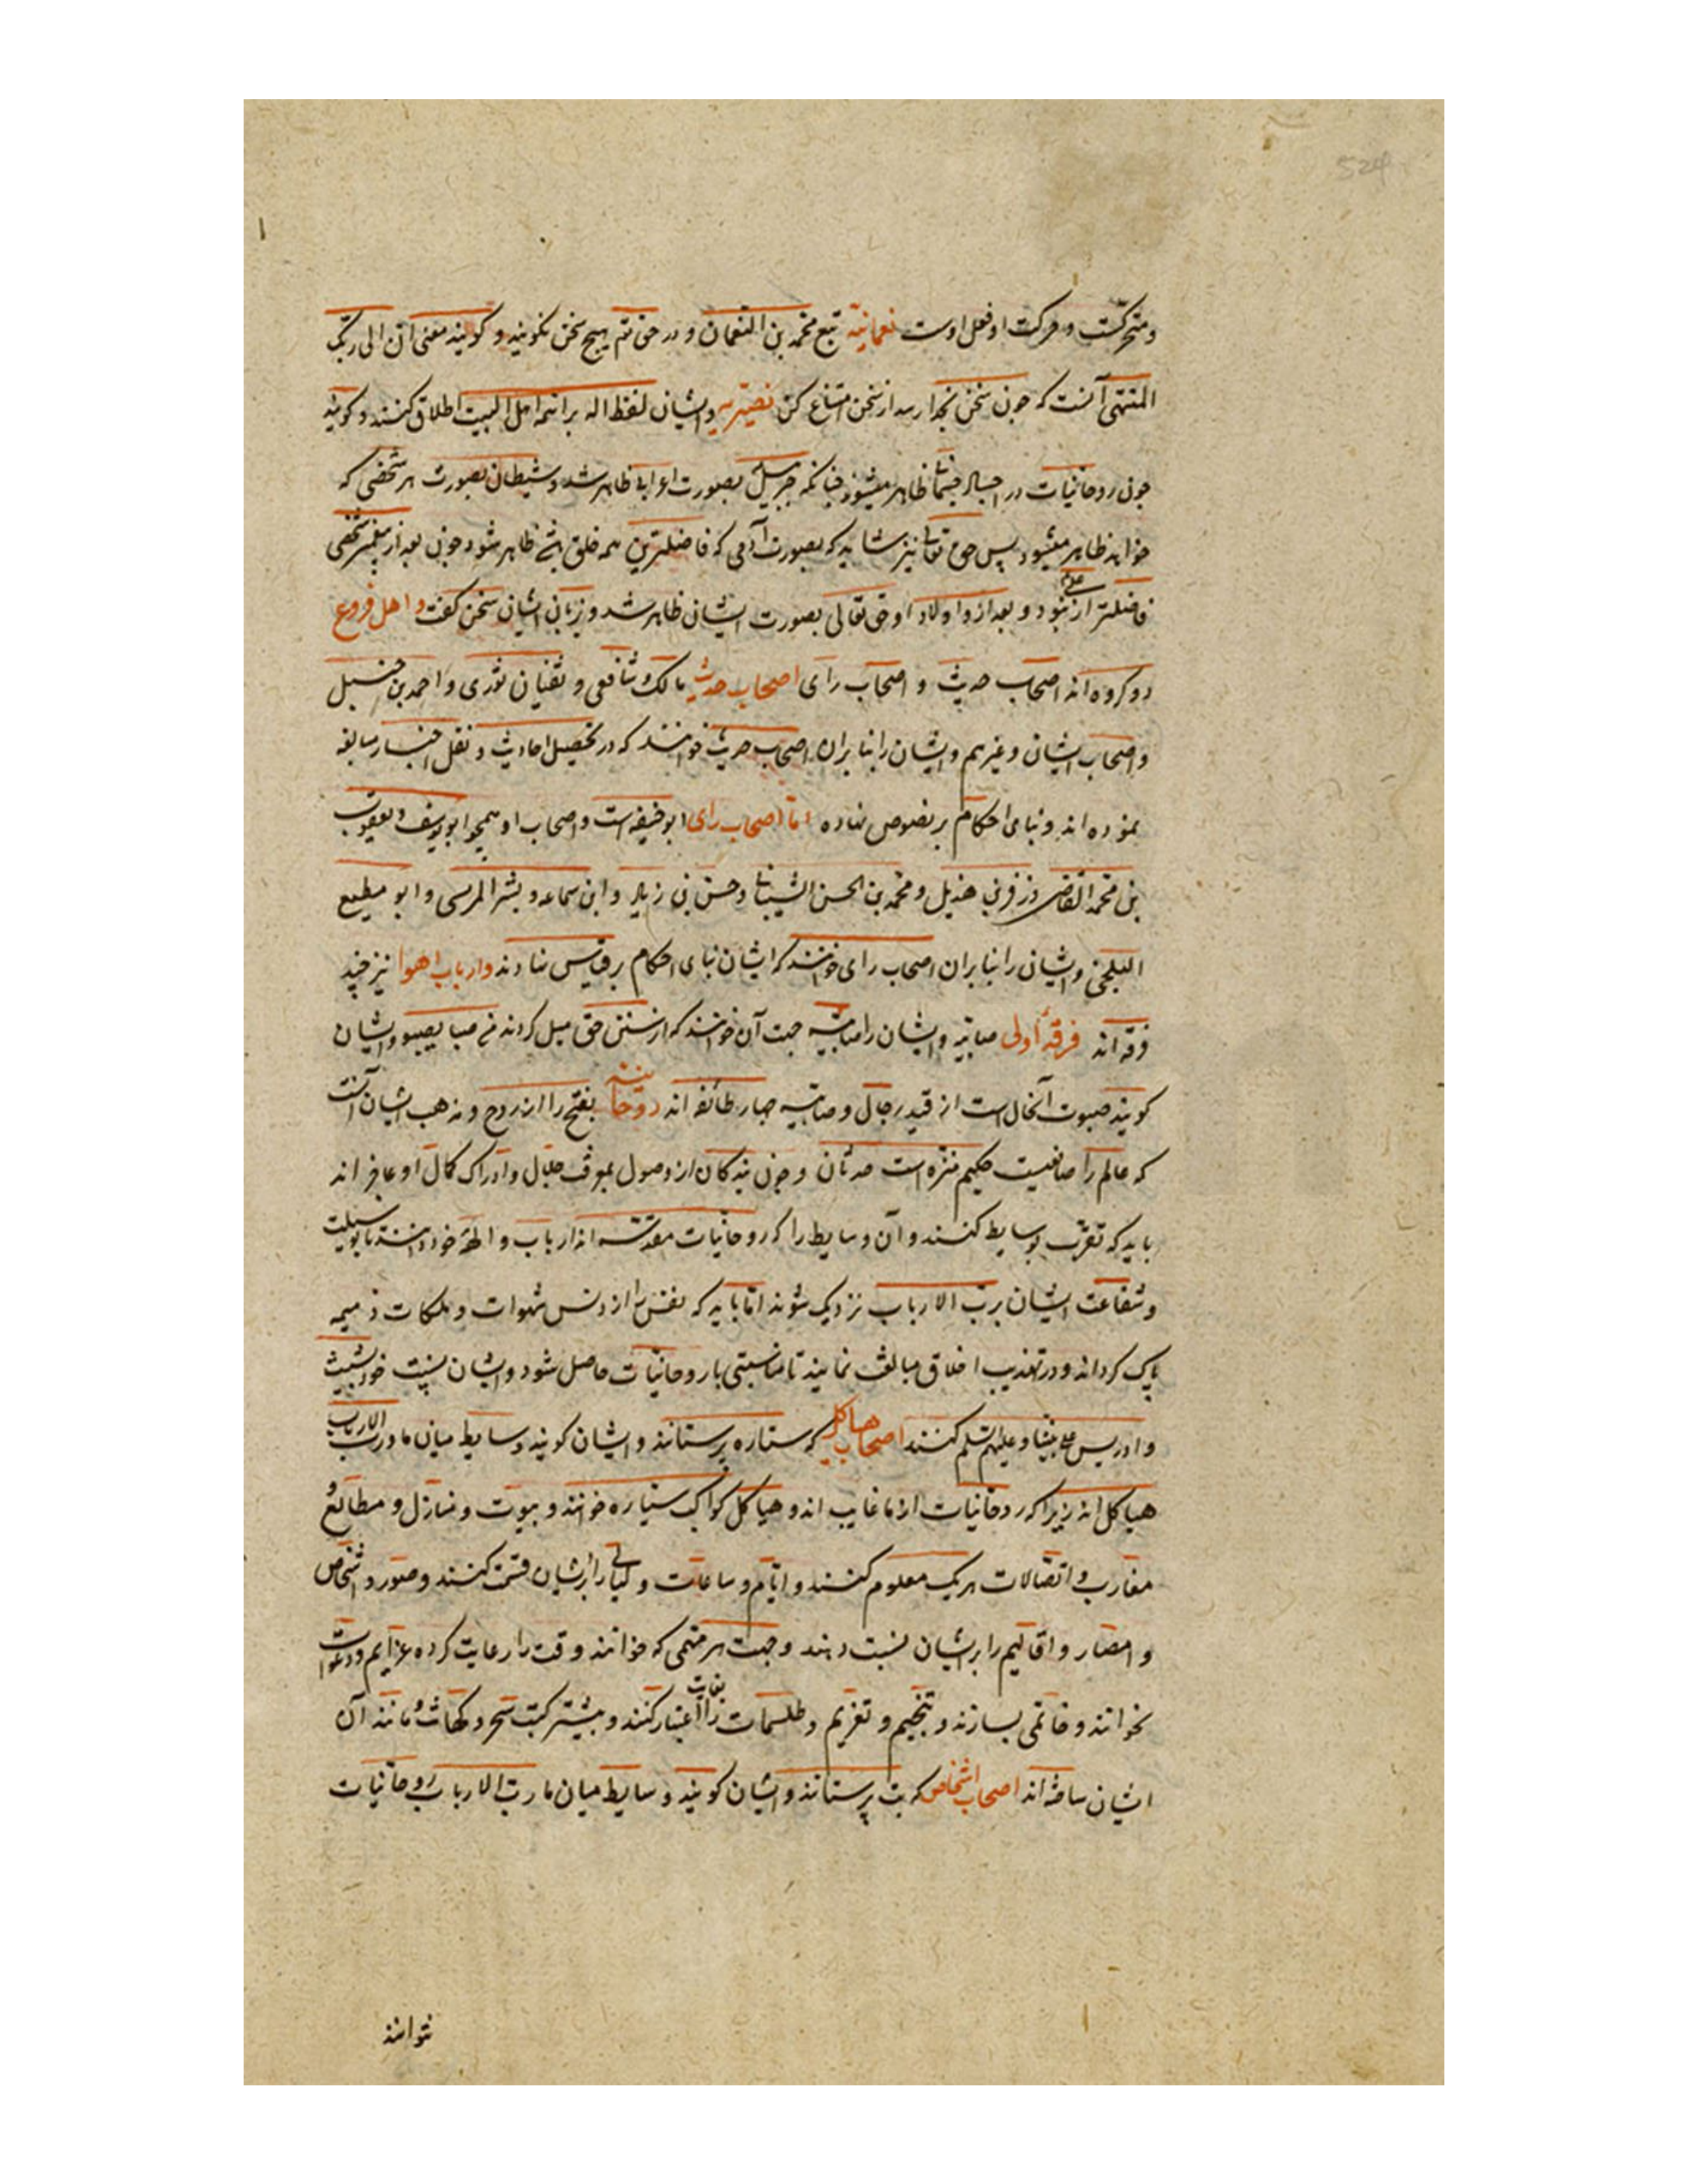 و متحرکست و حرکت او فعل اوست نعمانیه تبع محمد بن النعمان و در حق تم هیچ سخن نکویند و کویند معنی ان الی ربک
المنتهی آنست که جون سخن بخدا رسد از سخن امتناع کن نصیریه و ایشان لفظ اله بر ائمه اهل البیت اطلاق کنند و کویند
جون روحانیات در اجساد جسمانی ظاهر میشوند جنانکه جبرییل بصورت اعرابی ظاهر شد و شیطان بصورت هر شخصی که
خواهد ظاهر میشود پس حق تعالی نیز شاید که بصورت آدمی که فاضلترین همه خلق باشد ظاهر شود جون بعد از پیغمبر شخصی
فاضلتر از علی نبود و بعد ازو اولاد او حق تعالی بصورت ایشان ظاهر شد و زبان ایشان سخن کفت و اهل فروع
دو کروه اند اصحاب حدیث و اصحاب رای اصحاب حدیث مالک و شافعی و سفیان ثوری و احمد بن حنبل
و اصحاب ایشان و غیرهم و ایشان را بنا بران اصحاب حدیث خوانند که در تحصیل احادیث و نقل اخبار مبالغه
نموده اند و بنای احکام بر نصوص نهاده اما اصحاب رای ابو حنیفه است و اصحاب او همجو ابو یوسف و یعقوب
بن محمد القاضی و زفر بن هذیل و محمد بن الحسن الشیبانی و حسن بن زیاد و ابن سماعه و بشر المرسی و ابو مطیع
البلخی و ایشان را بنا بران اصحاب رای خوانند که ایشان بنای احکام بر قیاس نهادند و ارباب اهوا نیز چند
فرقه اند فرقه اولی صابیه و ایشان را صابیه جهت آن خوانند که از سنن حق میل کردند من صبا یصبو و ایشان
کویند صبوت انحلال است از قید رجال و صابیه جهار طائفه اند روحانیه بفتح را از روح و مذهب ایشان آنست
که عالم را صانعیست حکیم منزه است حدثان و جون بندکان از وصول بموقف جلال و ادراک کمال او عاجز اند
باید که تقرب بوسایط کنند و آن وسایط را که روحانیات مقدسه اند ارباب و الهه خود دانسته تا بوسیلت
و شفاعت ایشان برب الارباب نزدیک شوند اما باید که نفس را از دنس شهوات و ملکات ذمیمه
پاک کرداند و در تهذیب اخلاق مبالغه نمایند تا مناسبتی با روحانیات حاصل شود و ایشان نسبت خود بشیث
و ادریس علی نبینا و علیهم سلم کنند اصحاب هیاکل که ستاره پرستانند و ایشان کویند وسایط میان ما و رب الارباب
هیاکل اند زیرا که روحانیات از ما غایب اند و هیاکل کواکب سیاره خوانند و بیوت و منازل و مطالع و
مغارب و اتصالات هر یک معلوم کنند و ایام و ساعات و لیالی را بر ایشان قسمت کنند و صور و اشخاص
و امصار و اقالیم را بر ایشان نسبت دهند و جهت هر مهمی که خوانند وقت را رعایت کرده عزایم و دعوات
بخوانند و خاتمی بسازند و تنجیم و تعزیم و طلسمات را اعتبار کنند و بیشتر کتب سحر و کهانت و مانند آن
ایشان ساخته اند اصحاب اشخاص که بت پرستانند و ایشان کویند وسایط میان ما رب الارباب روحانیات
نتوانند